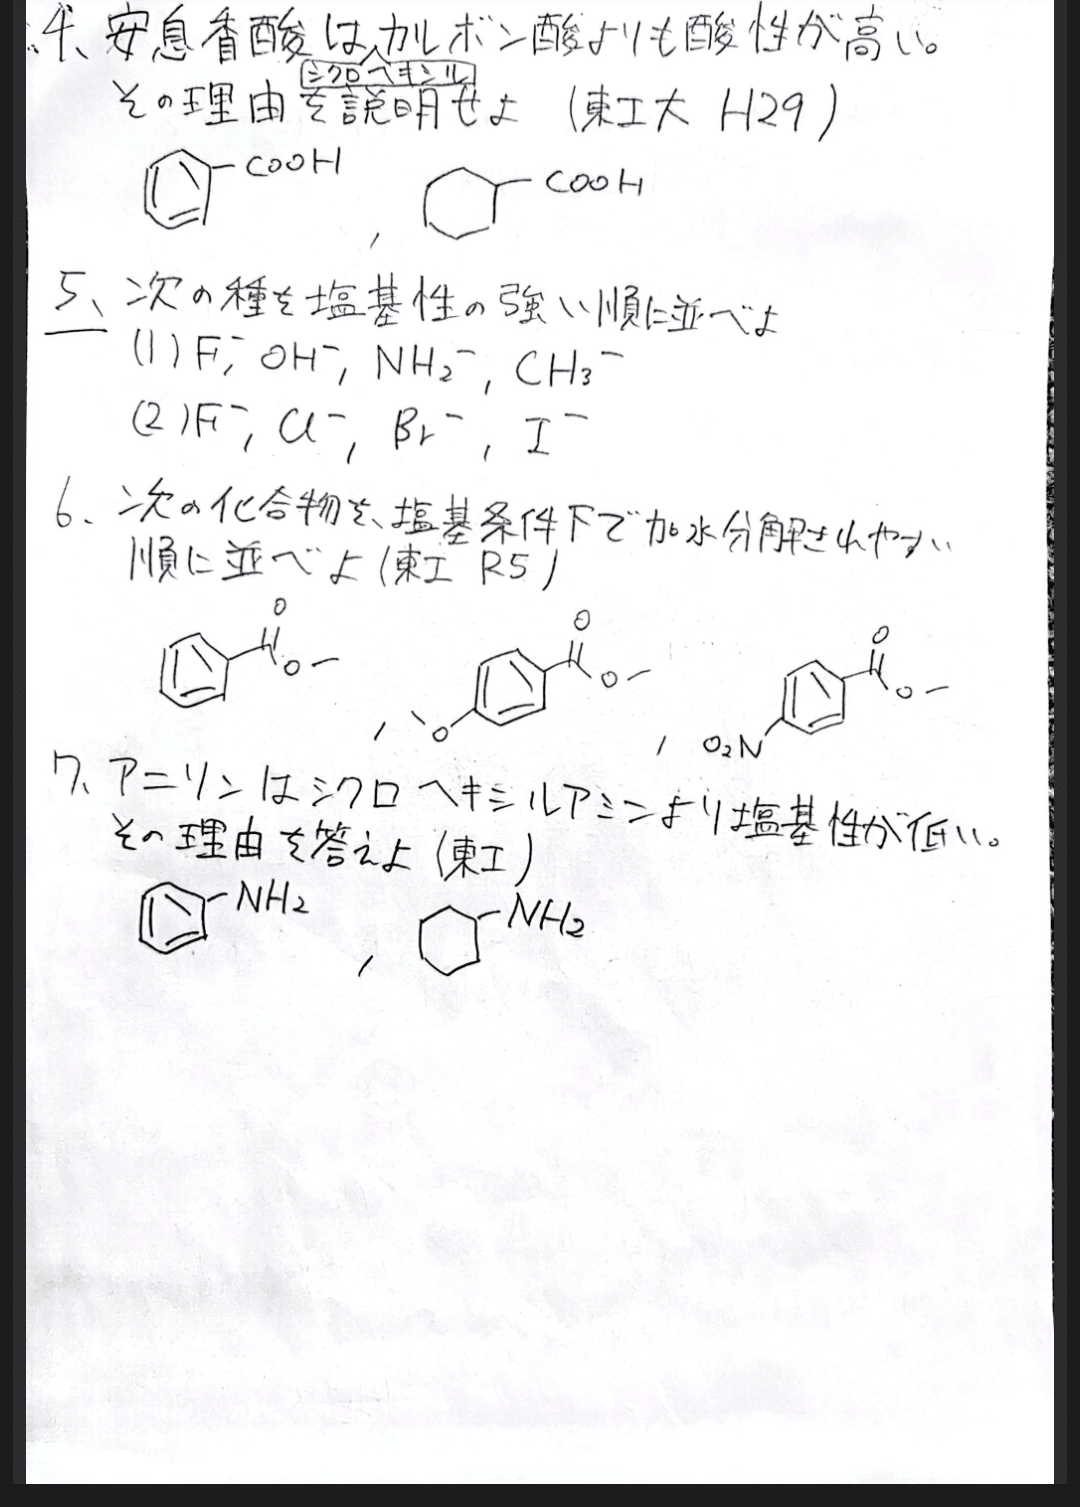 4、安息香酸はシクロヘキシルカルボン酸よりも酸性が高い。
その理由を説明せよ (東工大 H29)
COOH , COOH
5、次の種を塩基性の強い順に並べよ
(1) F⁻, OH⁻, NH₂⁻, CH₃⁻
(2) F⁻, Cl⁻, Br⁻, I⁻
6、次の化合物を、塩基条件下で加水分解されやすい
順に並べよ (東工 R5)
O O O
O , O O , O₂N O
7、アニリンはシクロヘキシルアミンより塩基性が低い。
その理由を答えよ (東工)
NH₂ , NH₂